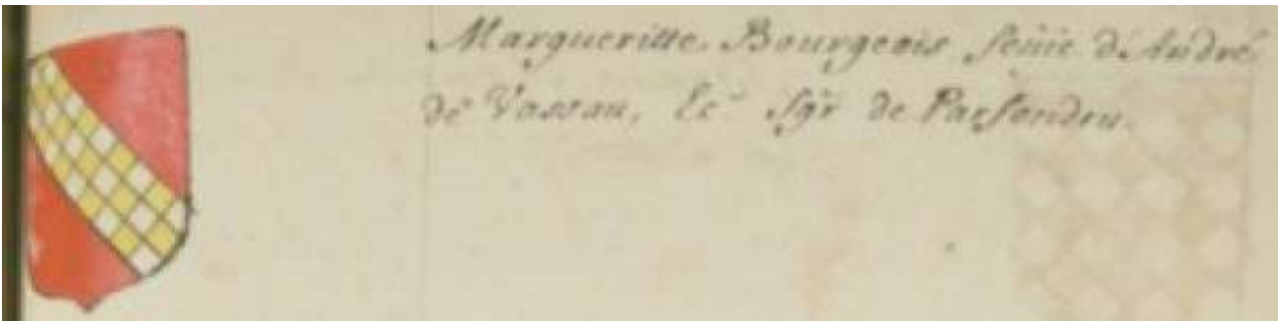 Margueritte Bourgeois feme d'André
de Vassau, Ec.r Sgr de Parfondru.